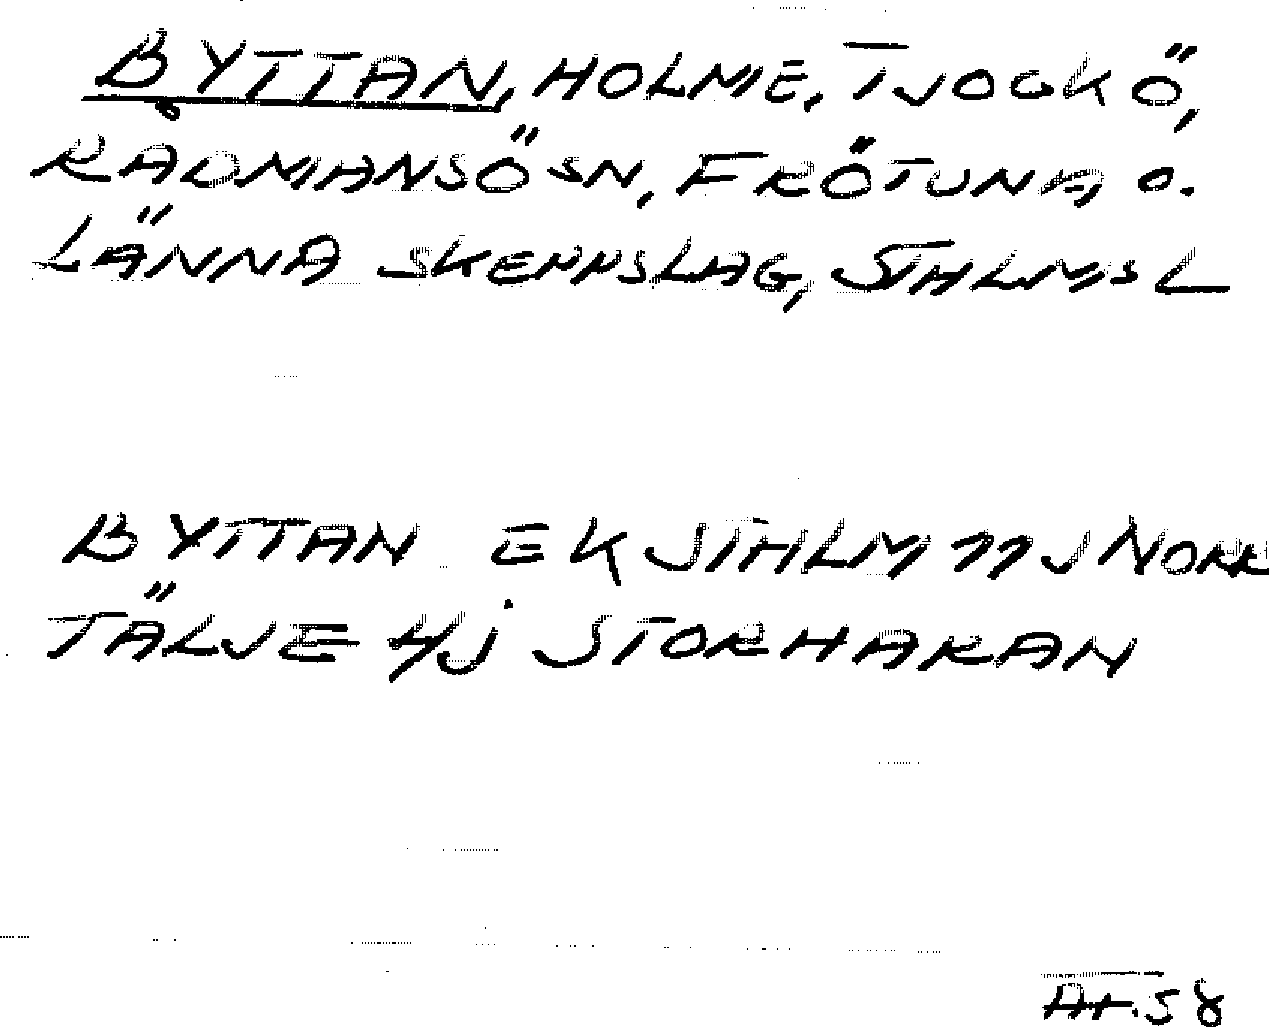 BYTTAN, HOLME, TJOCKÖ,
RÅDMANSÖ SN, FRÖTUNA, O.
LÄNNA SKEPPSLAG, STHLMS L
BYTTAN EK STHLM 11J NORR
TÄLJE 4J STORHARAN
58